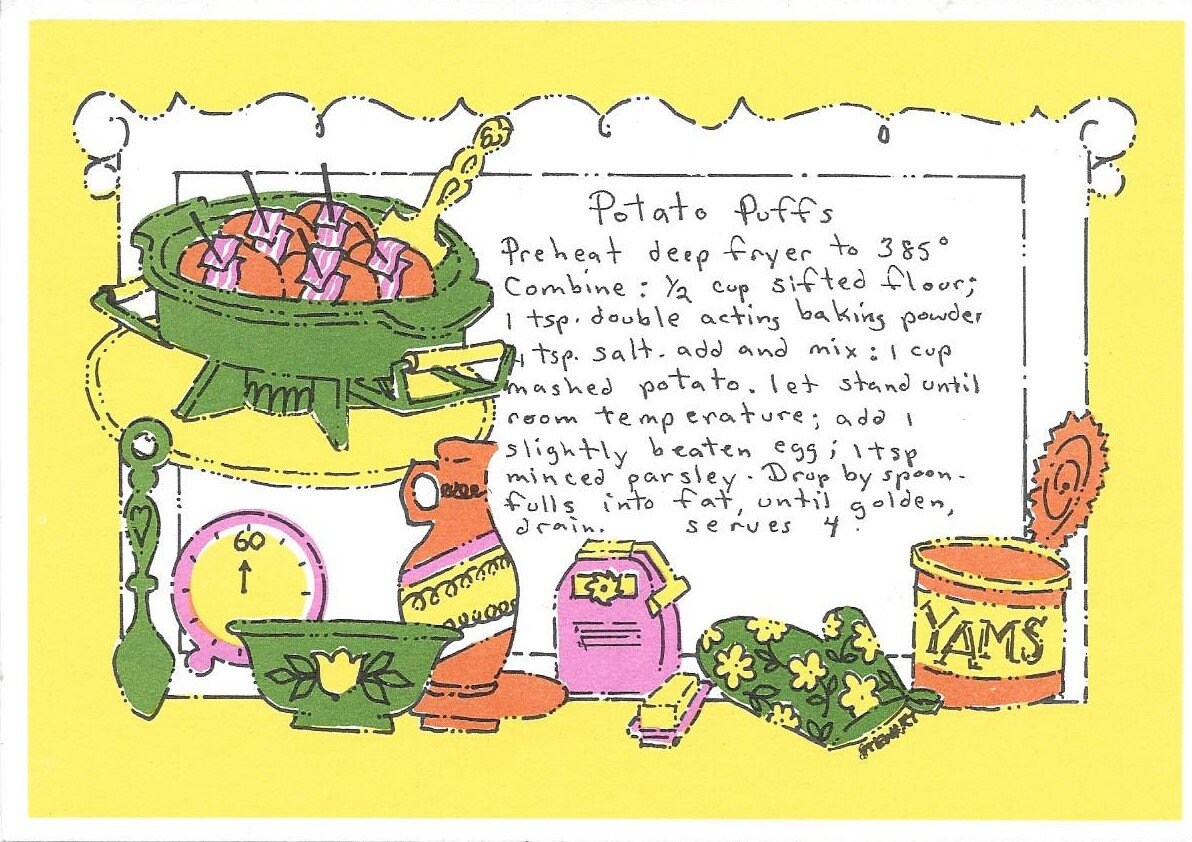 Potato Puffs
Preheat deep fryer to 385°
Combine: ½ cup sifted flour;
1 tsp. double acting baking powder
tsp. salt. add and mix: 1 cup
mashed potato. let stand until
room temperature; add 1
slightly beaten egg; 1 tsp
minced parsley. Drop by spoon-
fulls into fat, until golden,
drain. serves 4.
60
YAMS
STEWART